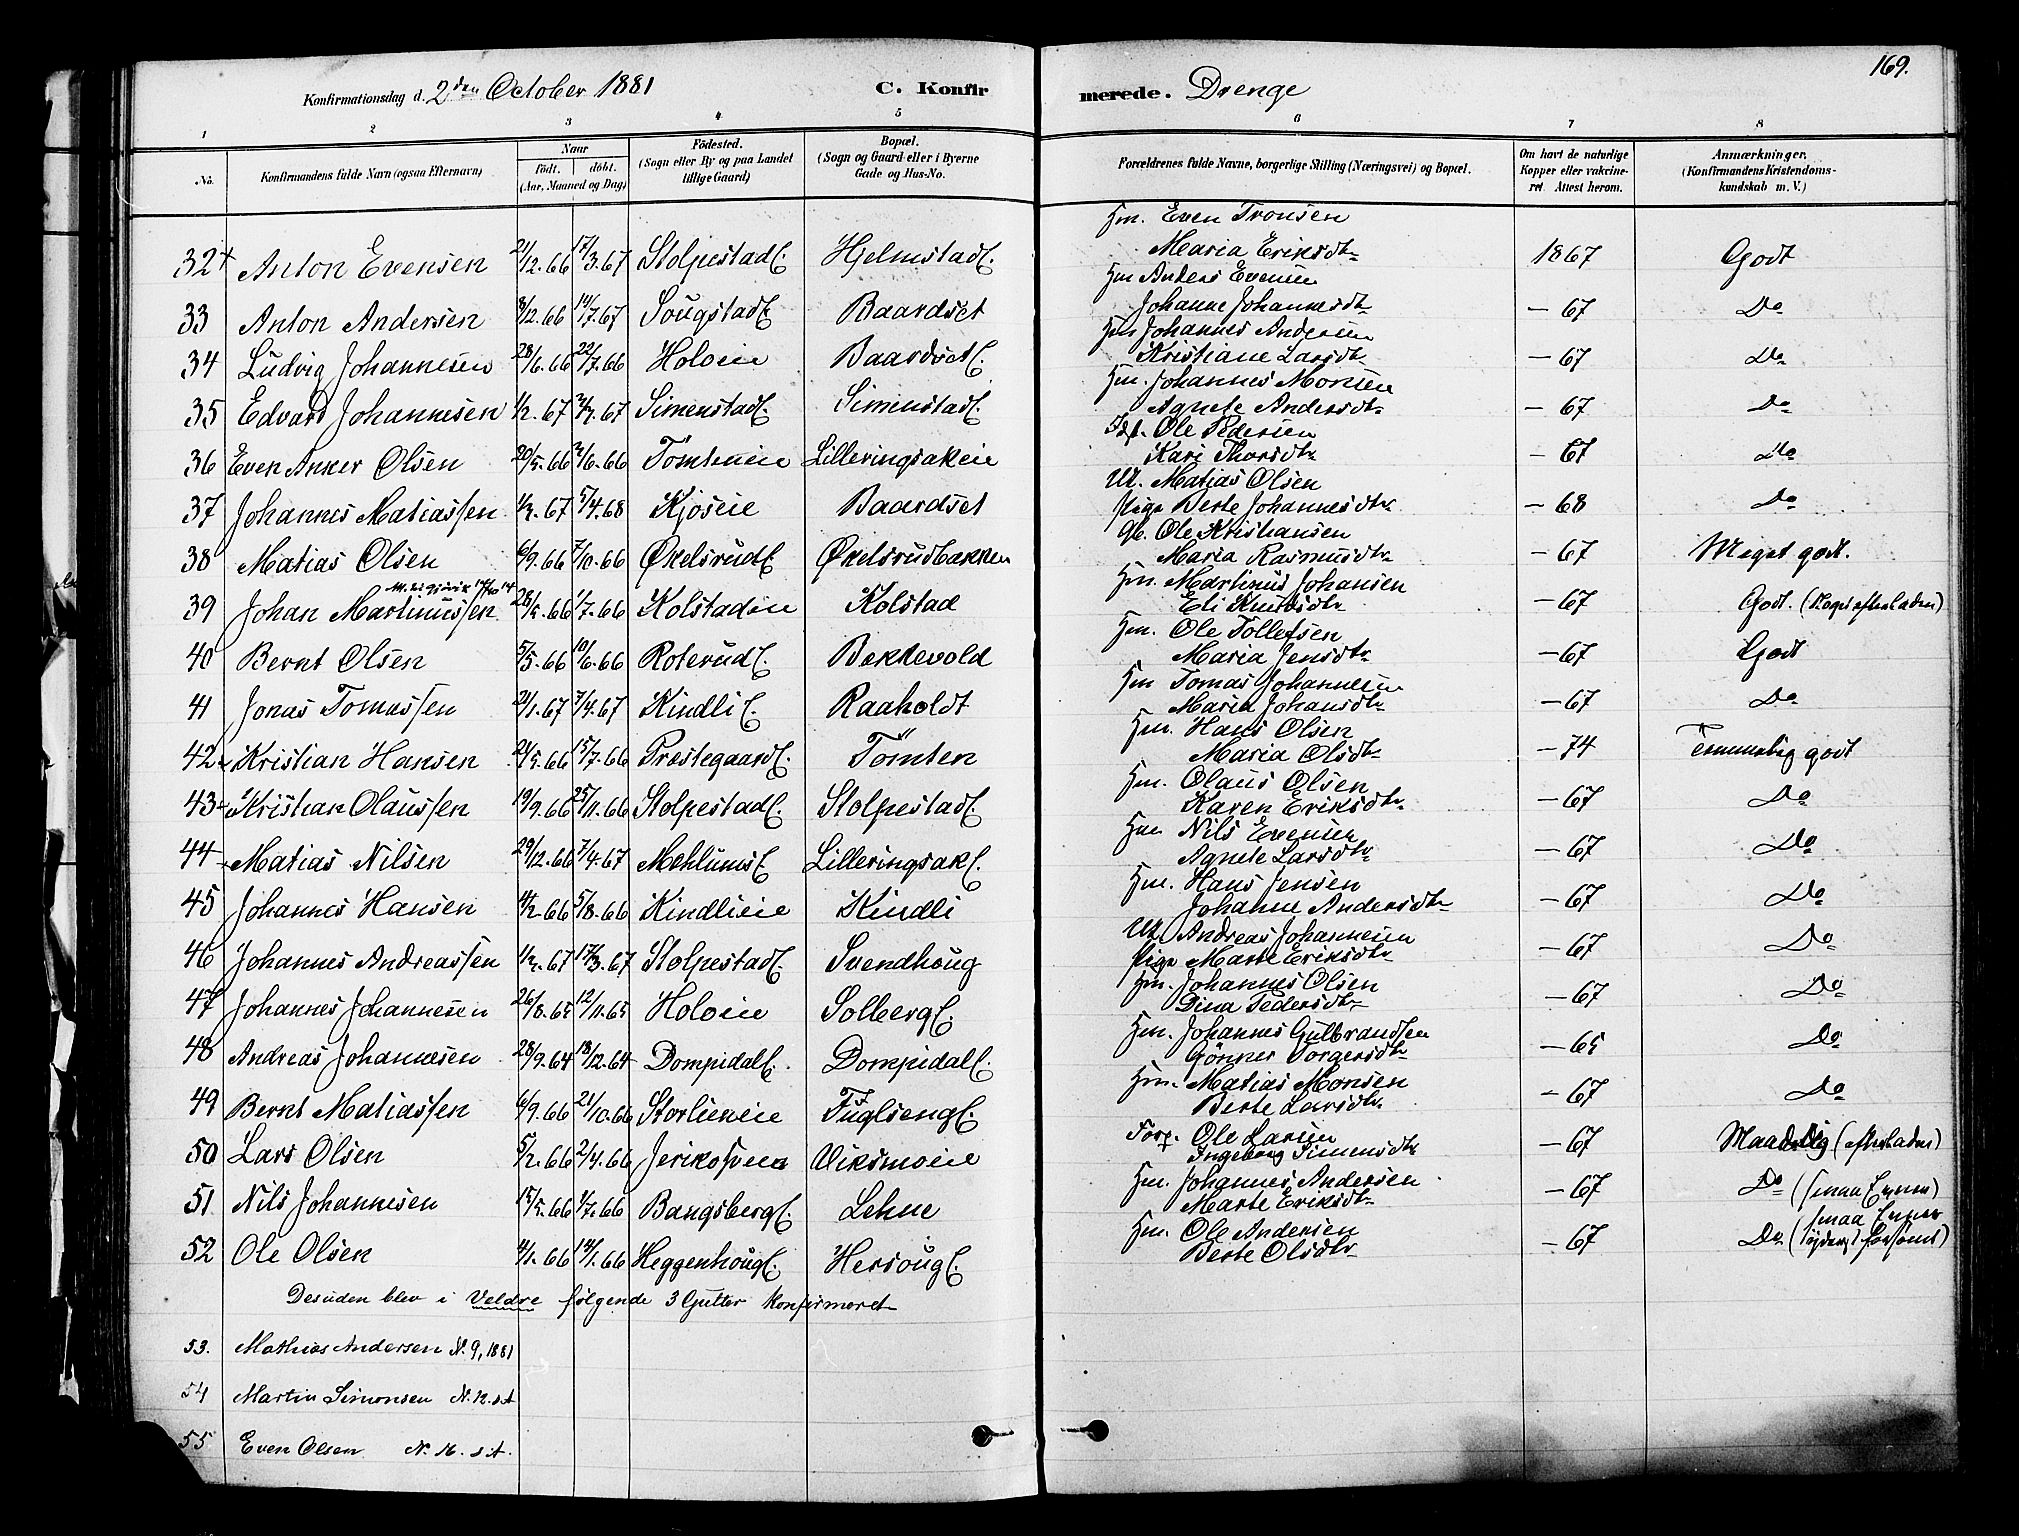 169.
Konfirmationsdag d. 2den October 1881 C. Konfirmerede. Drenge
1 2 3 4 5 6 7 8
No. Konfirmandens fulde Navn (ogsaa Efternavn) Naar födt. döbt. (Aar, Maaned og Dag) Födested. (Sogn eller By og paa Landet tillige Gaard) Bopæl. (Sogn og Gaard eller i Byerne Gade og Hus-No. Forældrenes fulde Navne, borgerlige Stilling (Næringsvei) og Bopæl. Om havt de naturlige Kopper eller vakcineret. Attest herom. Anmærkninger. (Konfirmandens Kristendomskundskab m. V.)
Hm. Even Tronsen
32 + Anton Evensen 21/12.66 17/3.67 Stolpestad Hjelmstad Maria Eriksdtr 1867 Godt
Hm Anders Evensen
33 Anton Andersen 8/12.66 14/7.67 Sougstad Baardset Johanne Johannesdtr - 67 Do
Hm Johannes Andersen
34 Ludvig Johannesen 28/6.66 22/7.66 Holoeie Baardset Kristiane Larsdtr - 67 Do
Hm. Johannes Monsen
35 Edvard Johannesen 1/2.67 Simenstad Simenstad Agnete Andersdtr - 67 Do
Ole Pedersen
36 Even Anker Olsen 20/5.66 2/6.66 Tomteneie Lilleringsakeie Kari Thorsdtr - 67 Do
Ul. Matias Olsen
37 Johannes Matiassen 1/3.67 5/4.68 Kjoseie Baardset pige Berte Johannesdtr - 68 Do
Gb. Ole Kristiansen
38 Matias Olsen 6/9.66 7/10.66 Økelsrud Økelsrudbakken Maria Rasmusdtr - 67 Meget godt.
Hm. Martinus Johansen
39 Johan Martinussen 28/5.66 1/7.66 Kolstadeie Kolstad Eli Knudsdtr - 67 Godt.
Hm. Ole Tollefsen
40 Bernt Olsen 5/5.66 10/6.66 Roterud Bekkevold Maria Jensdtr - 67 Godt
Hm Tomas Johannesen
41 Jonas Tomassen 21/1.67 7/4.67 Kindli Raaholdt Maria Johansdtr - 67 Do
Hm. Hans Olsen
42 Kristian Hansen 21/5.66 15/7.66 Prestegaard Tömten Maria Olsdtr - 74 Temmelig godt
Hm. Olaus Olsen
43 Kristian Olaussen 19/9.66 25/11.66 Stolpestad Stolpestad Karen Eriksdtr - 67 Do
Hm Nils Evensen
44 Matias Nilsen 29/12.66 7/4.67 Mehlum Lilleringsak Agnete Larsdtr - 67 Do
Hm. Hans Jensen
45 Johannes Hansen 11/2.66 5/8.66 Kindlieie Kindli Johanne Andersdtr - 67 Do
Ul Andreas Johannesen
46 Johannes Andreassen 1/2.67 17/3.67 Stolpestad Svendhoug pige Marte Eriksdtr - 67 Do
Hm. Johannes Olsen
47 Johannes Johannesen 26/8.65 12/11.65 Holoeie Solberg Dina Pedersdtr - 67 Do
Hm. Johannes Gulbrandsen
48 Andreas Johannesen 28/9.64 18/12.64 Dompidal Dompidal Gönner Torgersdtr - 65 Do
Hm. Matias Monsen
49 Bernt Matiassen 6/9.66 21/10.66 Storlieneie Fuglseng Berte Larsdtr - 67 Do
Ole Larsen
50 Lars Olsen 5/2.66 2/4.66 Viksmoeie Ingeborg Simensdtr - 67 Maadelig (efterladen)
Hm. Johannes Andersen
51 Nils Johannesen 15/5.66 1/7.66 Bangsberg Lehne Marte Eriksdtr - 67 Do (smaa Evner)
Hm. Ole Andersen smaa Evner
52 Ole Olsen 4/1.66 14/1.66 Heggenhoug Hersoug Berte Olsdtr - 67 Do (yderst forsömt)
Desuden blev i Veldre følgende 3 Gutter konfirmeret
53. Mathias Andersen N. 9, 1881
54 Martin Simonsen N. 12. s A
55 Even Olsen N. 16. s A.